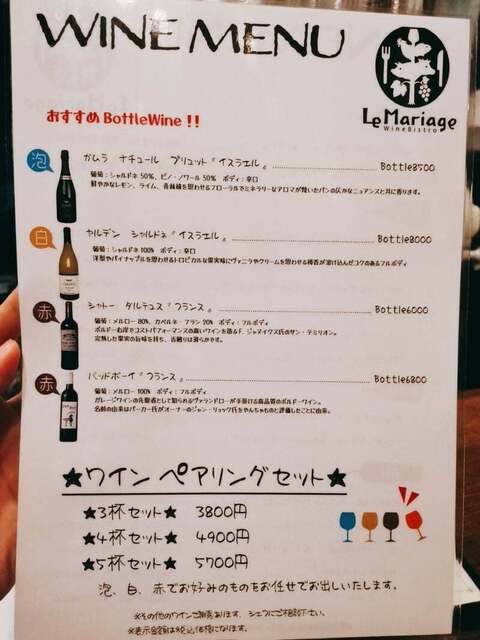 WINE MENU
Le Mariage
WineBistro
おすすめ BottleWine !!
泡
ガムラ ナチュール ブリュット『イスラエル』 Bottle8500
葡萄：シャルドネ 50%、ピノ・ノワール 50% ボディ：辛口
鮮やかなレモン、ライム、青林檎を思わせるフローラルでミネラリーなアロマが焼いたパンの仄かなニュアンスと共に香ります。
白
ヤルデン シャルドネ『イスラエル』 Bottle8000
葡萄：シャルドネ100% ボディ：辛口
洋梨やパイナップルを思わせるトロピカルな果実味にヴァニラやクリームを思わせる樽香が溶け込んだコクのあるフルボディ
赤
シャトー ダルデュス『フランス』 Bottle6000
葡萄：メルロー 80%、カベルネ・フラン 20% ボディ：フルボディ
ボルドー右岸でコストパフォーマンスの高いワインを造るF. ジャヌイクス氏のサン・テミリオン。
完熟した果実の旨味を持ち、舌触りは滑らかです。
赤
バッドボーイ『フランス』 Bottle6800
葡萄：メルロー 100% ボディ：フルボディ
ガレージワインの先駆者として知られるヴァランドローが手掛ける高品質のボルドーワイン。
名前の由来はパーカー氏がオーナーのジャン・リュック氏をやんちゃものと評価したことに由来。
★ワイン ペアリングセット★
★3杯セット★ 3800円
★4杯セット★ 4900円
★5杯セット★ 5700円
泡、白、赤でお好みのものをお任せでお出しいたします。
※その他のワインご用意あります、シェフにご相談下さい。
※表示金額は税込価格になります。